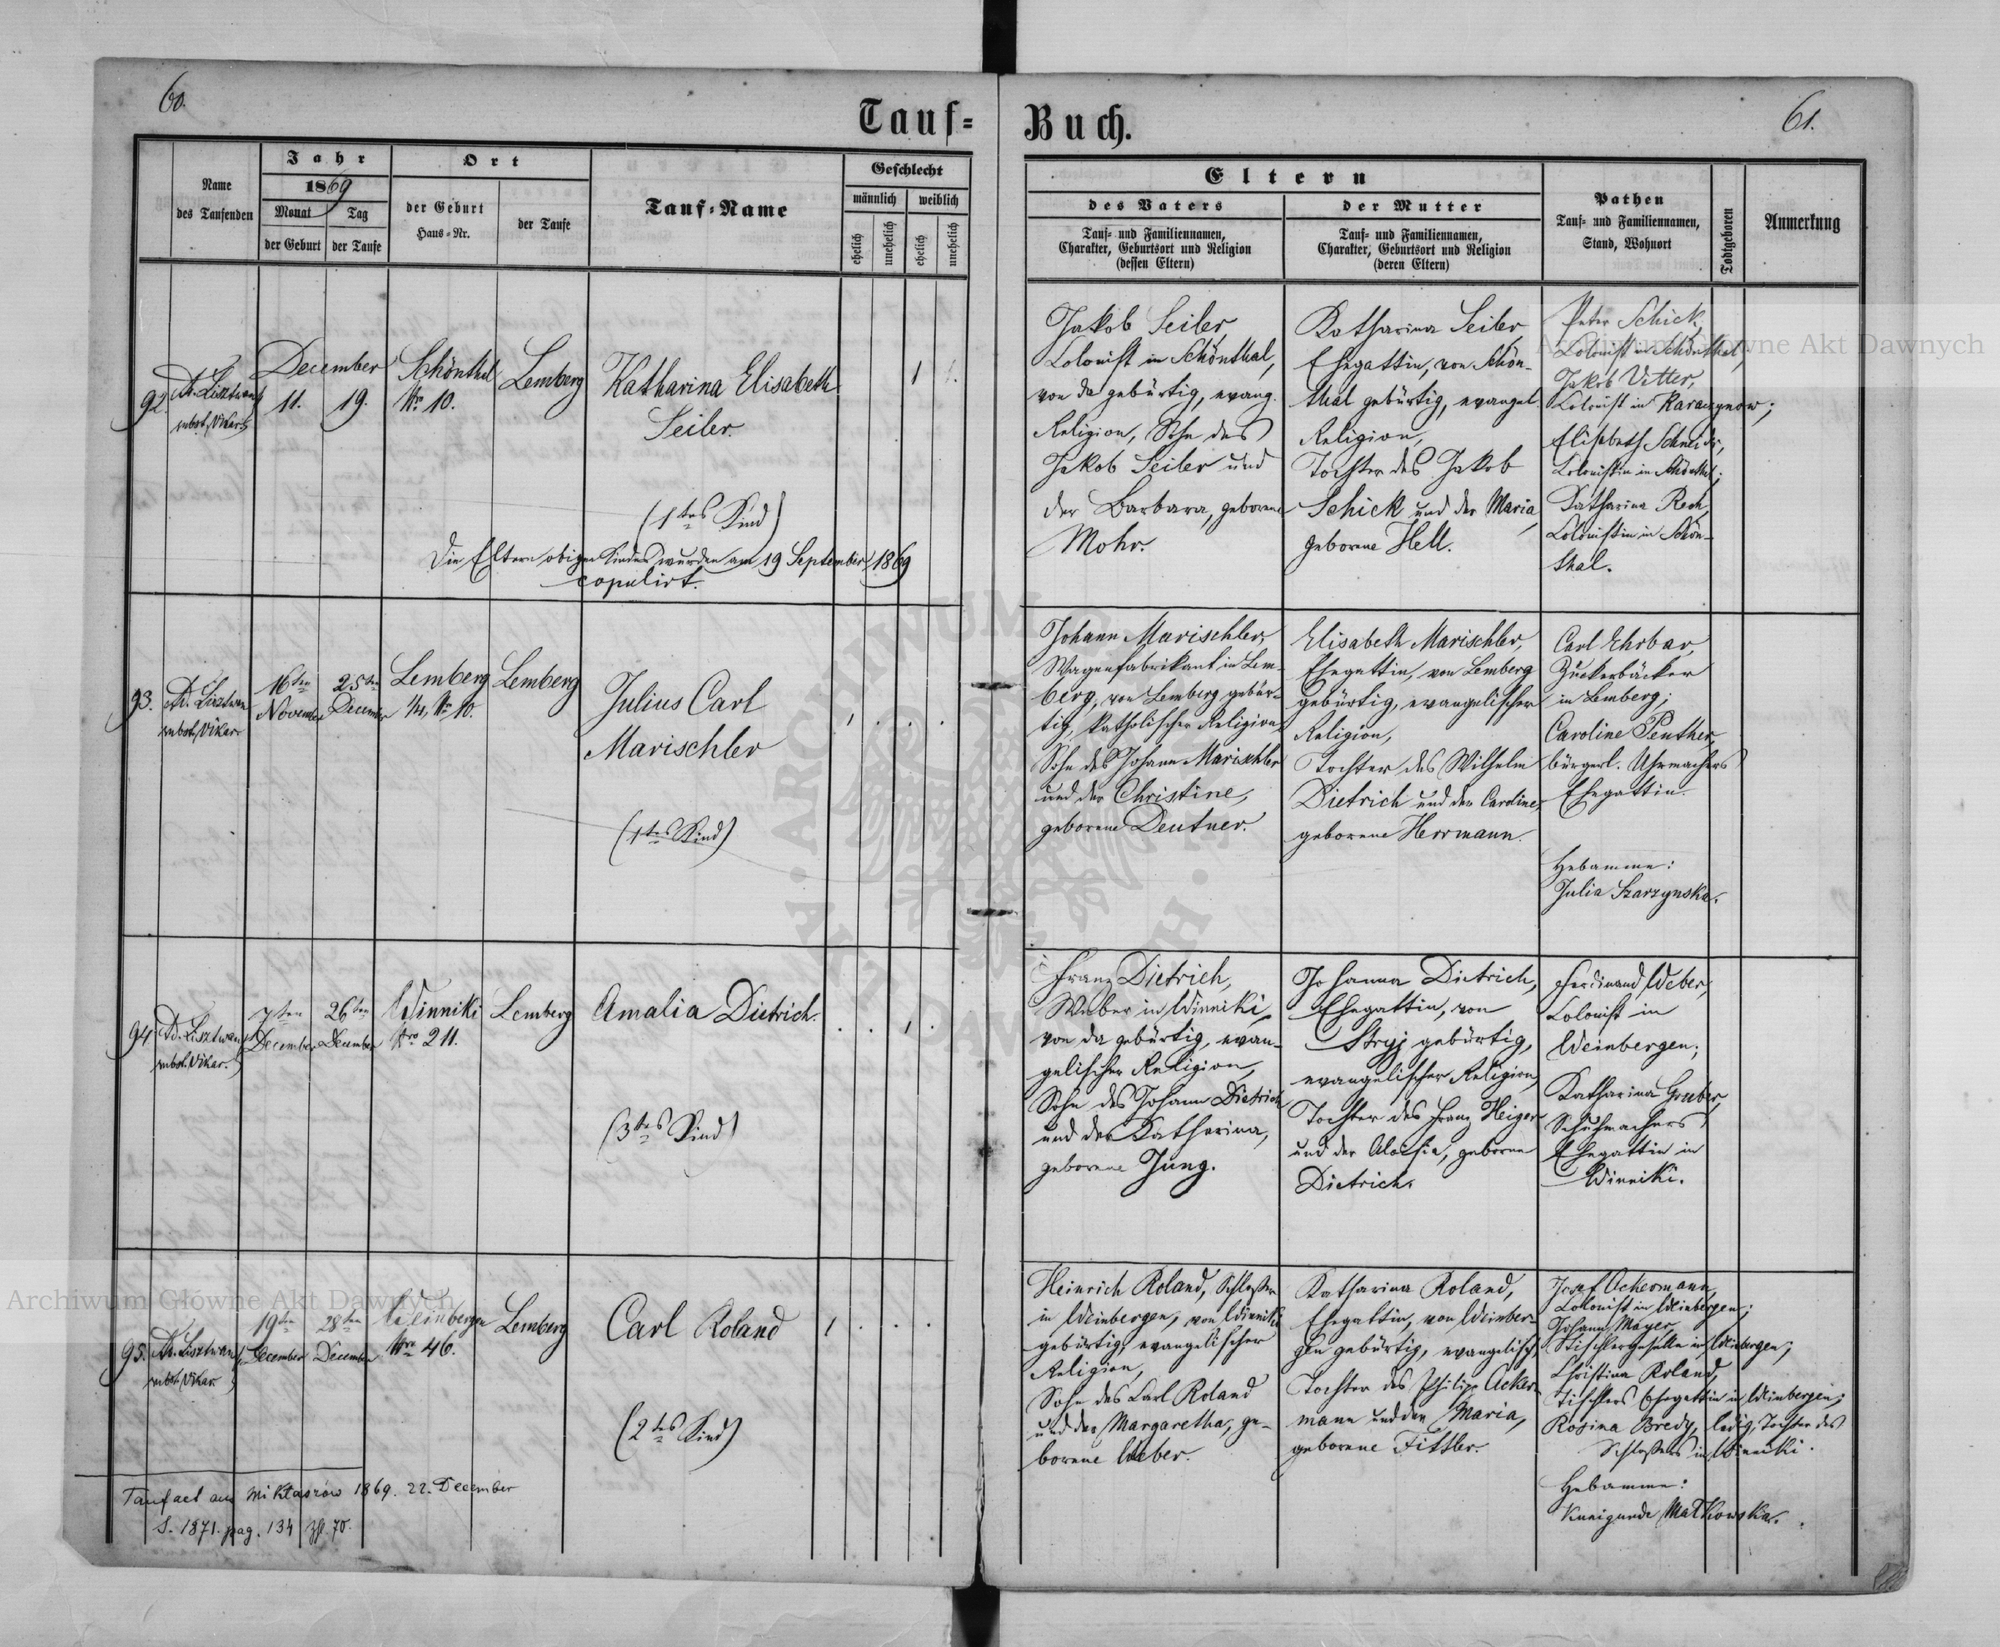 60.
Tauf=
Name
des Taufenden
Jahr
1869
Monat
Tag
der Geburt
der Taufe
Ort
der Geburt
Haus=Nr.
der Taufe
Tauf=Name
Geschlecht
männlich
weiblich
ehelich
unehelich
ehelich
unehelich
92.
subst. Vikar.
December
11.
19.
Schönthal
Nr 10.
Lemberg
Katharina Elisabeth
Seiler.
1
(1tes Kind)
Die Eltern obigen Kindes wurden am 19 September 1869
copulirt.
93.
subst. Vikar.
16ten
November
25ten
December
Lemberg
1/4, Nr 10.
Lemberg
Julius Carl
Marischler
1 . . .
(1tes Kind)
94.
subst. Vikar.
7ten
December
26ten
December
Winniki
Nro 211.
Lemberg
Amalia Dietrich.
. . 1 .
(3tes Kind)
95.
subst. Vikar.
19ten
December
28ten
December
Weinbergen
Nro 46.
Lemberg
Carl Roland
1 . . .
(2tes Kind)
Taufact aus Mikłaszów 1869. 22. December
S. 1871. pag. 134 70.
61.
Buch.
Eltern
des Vaters
Tauf= und Familiennamen,
Charakter, Geburtsort und Religion
(dessen Eltern)
der Mutter
Tauf= und Familiennamen,
Charakter, Geburtsort und Religion
(deren Eltern)
Pathen
Tauf= und Familiennamen,
Stand, Wohnort
Todtgeboren
Anmerkung
Jakob Seiler,
Colonist in Schönthal,
von da gebürtig, evang.
Religion, Sohn des
Jakob Seiler und
der Barbara, geborene
Mohr.
Katharina Seiler
Ehegattin, von Schön-
thal gebürtig, evangel.
Religion,
Tochter des Jakob
Schick und der Maria,
geborene Hell.
Peter Schick,
Colonist in Schönthal,
Jakob Vetter,
Colonist in Karaczynow;
Elisabeth Schneider,
Colonistin in Schönthal;
Katharina Rech,
Colonistin in Schön-
thal.
Johann Marischler,
Wagenfabrikant in Lem-
berg, von Lemberg gebür-
tig, katholischer Religion,
Sohn des Johann Marischler
und der Christine,
geborene Deutner.
Elisabeth Marischler,
Ehegattin, von Lemberg
gebürtig, evangelischer
Religion,
Tochter des Wilhelm
Dietrich und der Caroline,
geborene Herrmann.
Carl Ehrbar,
Zuckerbäcker
in Lemberg;
Caroline Penther,
bürgerl. Uhrmachers
Ehegattin.
Hebamme:
Julia Szarzynska.
Franz Dietrich,
Weber in Winniki,
von da gebürtig, evan-
gelischer Religion,
Sohn des Johann Dietrich
und der Katharina,
geborene Jung.
Johanna Dietrich,
Ehegattin, von
Stryj gebürtig,
evangelischer Religion,
Tochter des Franz Heiger
und der Aloisia, geborene
Dietrich.
Ferdinand Weber,
Colonist in
Weinbergen;
Katharina Gruber,
Schuhmachers
Ehegattin in
Winniki.
Heinrich Roland, Schlosser
in Weinbergen, von Winniki
gebürtig, evangelischer
Religion,
Sohn des Carl Roland
und der Margaretha, ge-
borene Weber.
Katharina Roland,
Ehegattin, von Weinber-
gen gebürtig, evangelisch,
Tochter des Philipp Acker-
mann und der Maria,
geborene Fittler.
Josef Ackermann,
Colonist in Weinbergen;
Johann Mayer,
Tischlergeselle in Weinbergen;
Christina Roland,
Tischlers Ehegattin in Weinbergen;
Rosina Bredy, ledig, Tochter des
Schlossers in Winniki.
Hebamme:
Kunigunde Matkowska.
Archiwum Główne Akt Dawnych
Archiwum Główne Akt Dawnych